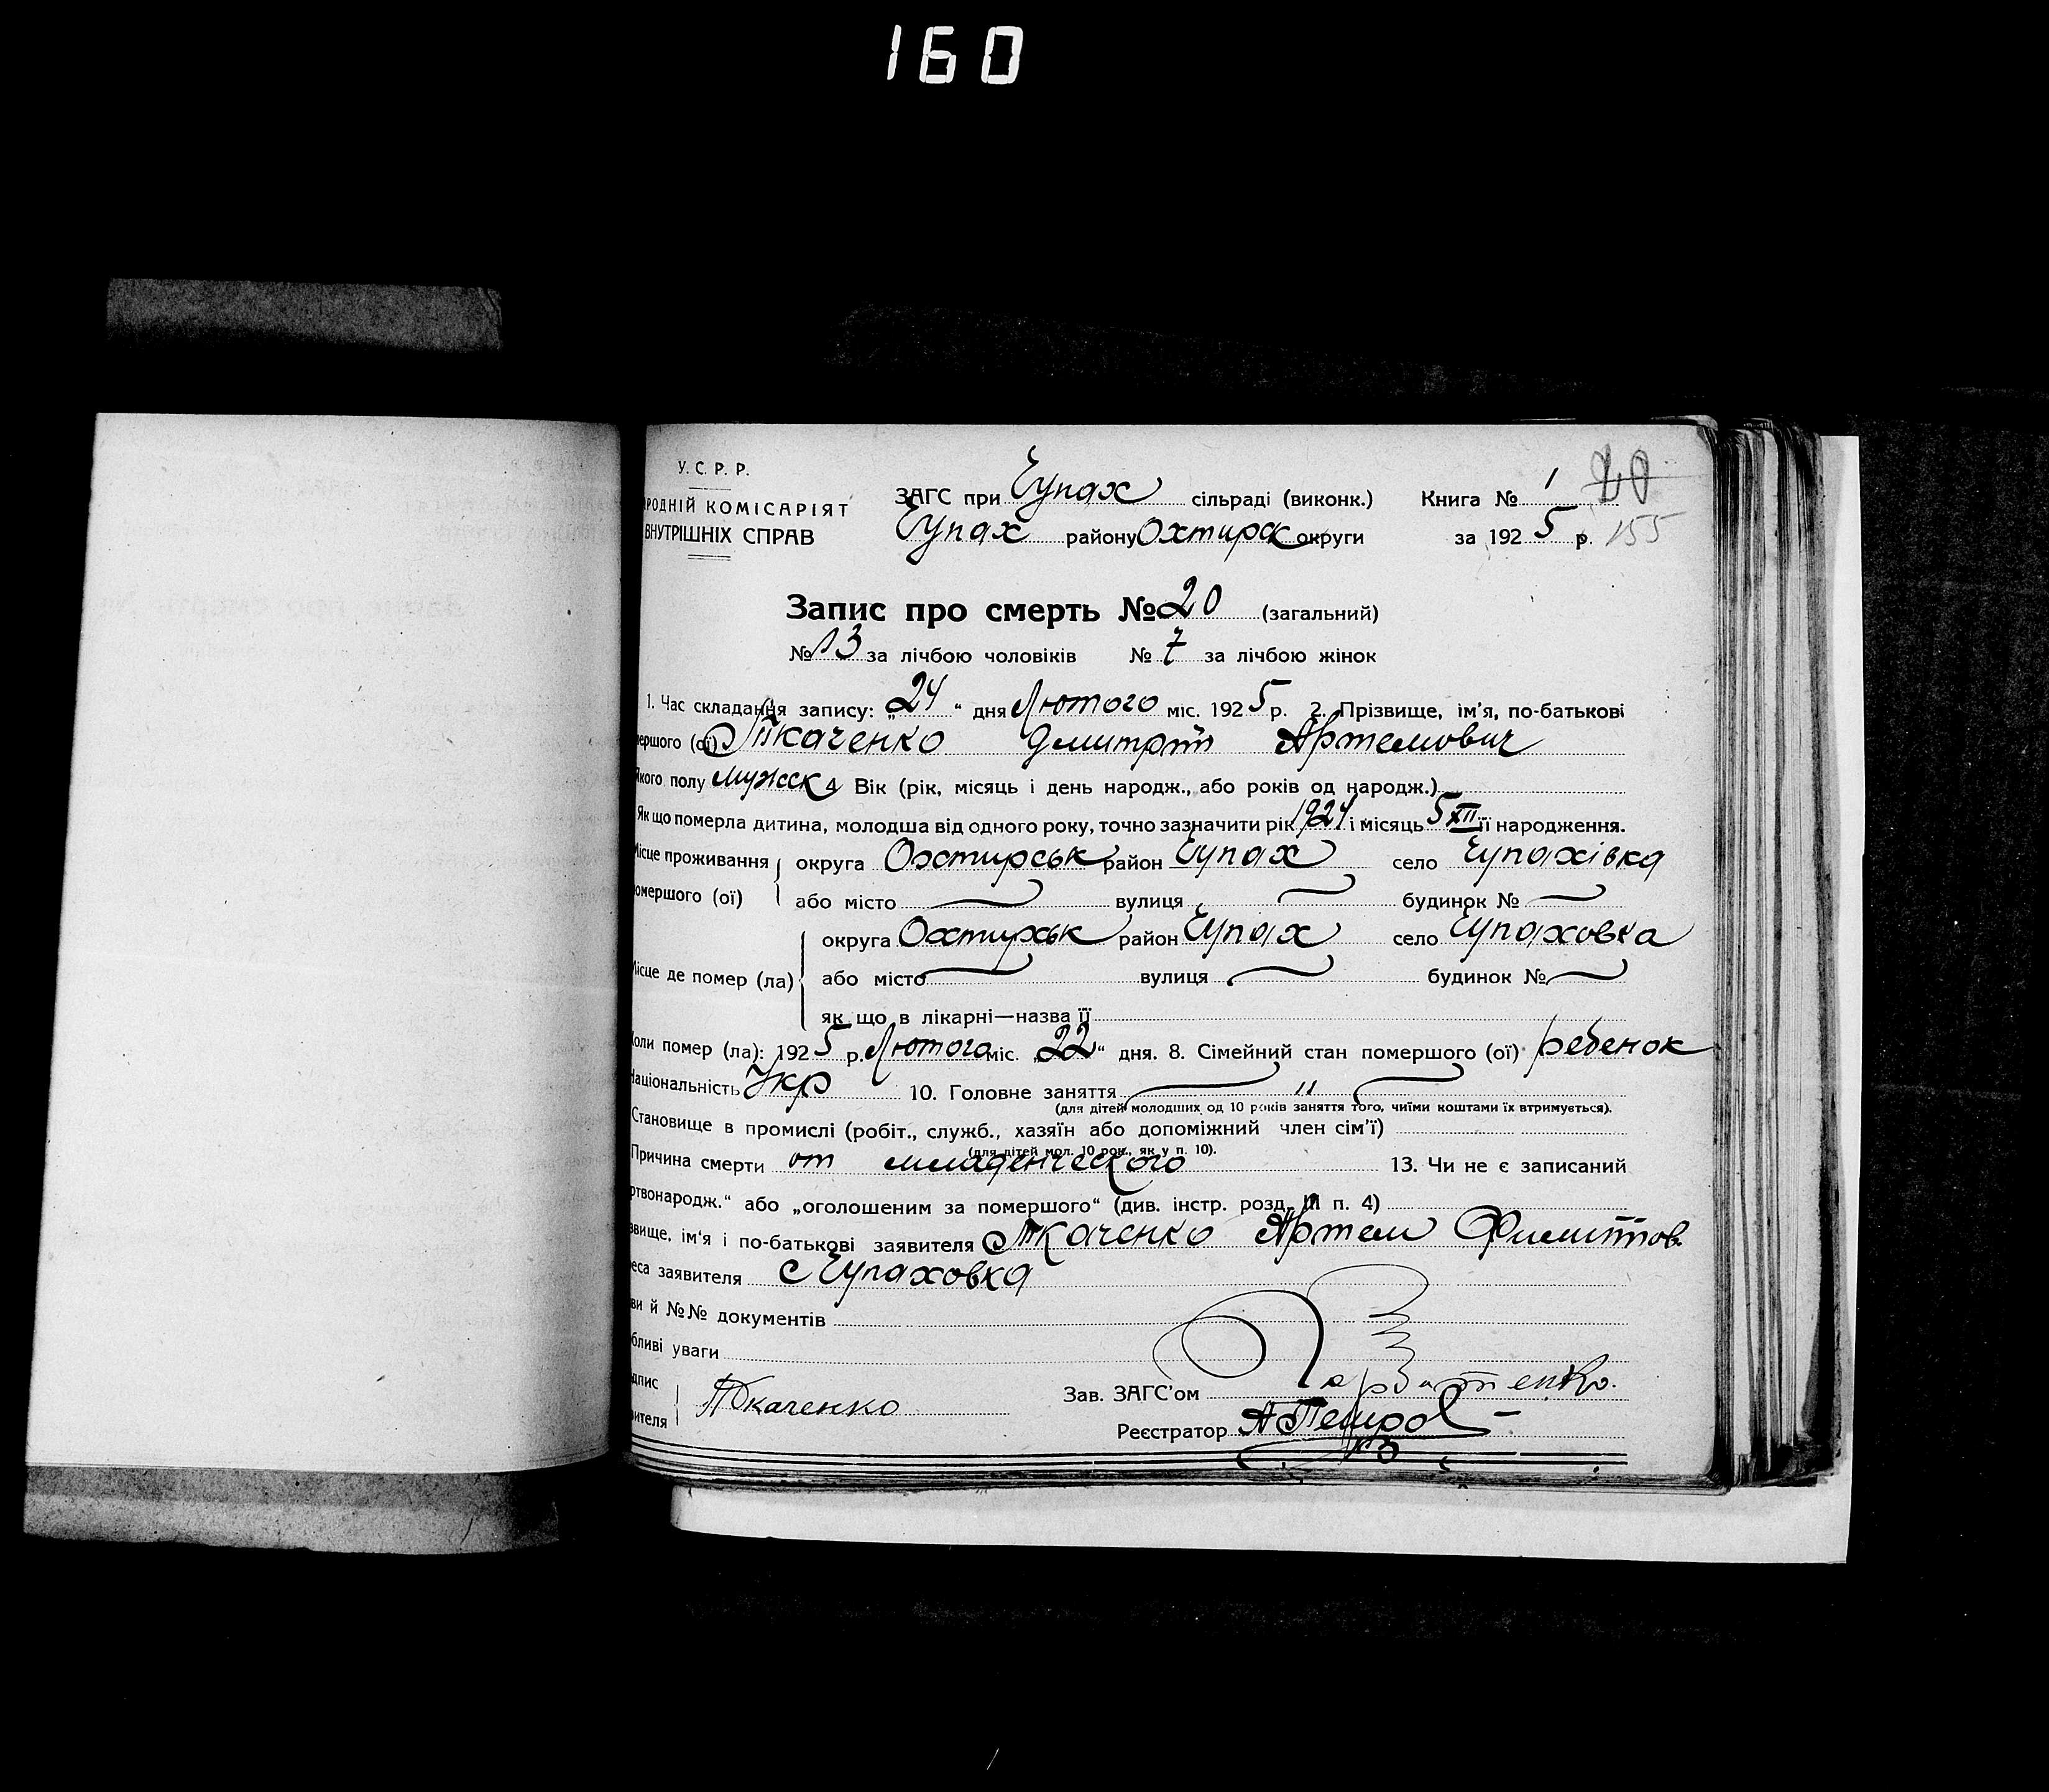 160
У. С. Р. Р.
РОДНІЙ КОМІСАРІЯТ
ВНУТРІШНІХ СПРАВ
ЗАГС при Чупах сільраді (виконк.) Книга № 1 20
Чупах району Охтирск округи за 1925 р. 155
Запис про смерть № 20 (загальний)
№ 13 за лічбою чоловіків № 7 за лічбою жінок
1. Час складання запису: „24“ дня Лютого міс. 1925 р. 2. Прізвище, ім'я, по-батькові
мершого (ої) Ткаченко Дмитрій Артемович
Якого полу мужск 4 Вік (рік, місяць і день народж., або років од народж.)
Як що померла дитина, молодша від одного року, точно зазначити рік 1924 і місяць 5 XII її народження.
Місце проживання округа Охтирськ район Чупах село Чупахівка
помершого (ої) або місто вулиця будинок №
округа Охтирськ район Чупах село Чупаховка
Місце де помер (ла) або місто вулиця будинок №
як що в лікарні—назва її
Коли помер (ла): 1925 р. Лютого міс. „22“ дня. 8. Сімейний стан помершого (ої) ребенок
Національність Укр 10. Головне заняття "
(для дітей молодших од 10 років заняття того, чиїми коштами їх втримується).
Становище в промислі (робіт., служб., хазяїн або допоміжний член сім'ї)
(для дітей мол. 10 рок., як у п. 10).
Причина смерти от младенческого 13. Чи не є записаний
ртвонародж.“ або „оголошеним за помершого“ (див. інстр. розд. III п. 4)
звище, ім'я і по-батькові заявителя Ткаченко Артем
реса заявителя с Чупаховка
ви й №№ документів
бливі уваги
дпис
вителя Ткаченко
Зав. ЗАГС'ом
Реєстратор А Петров